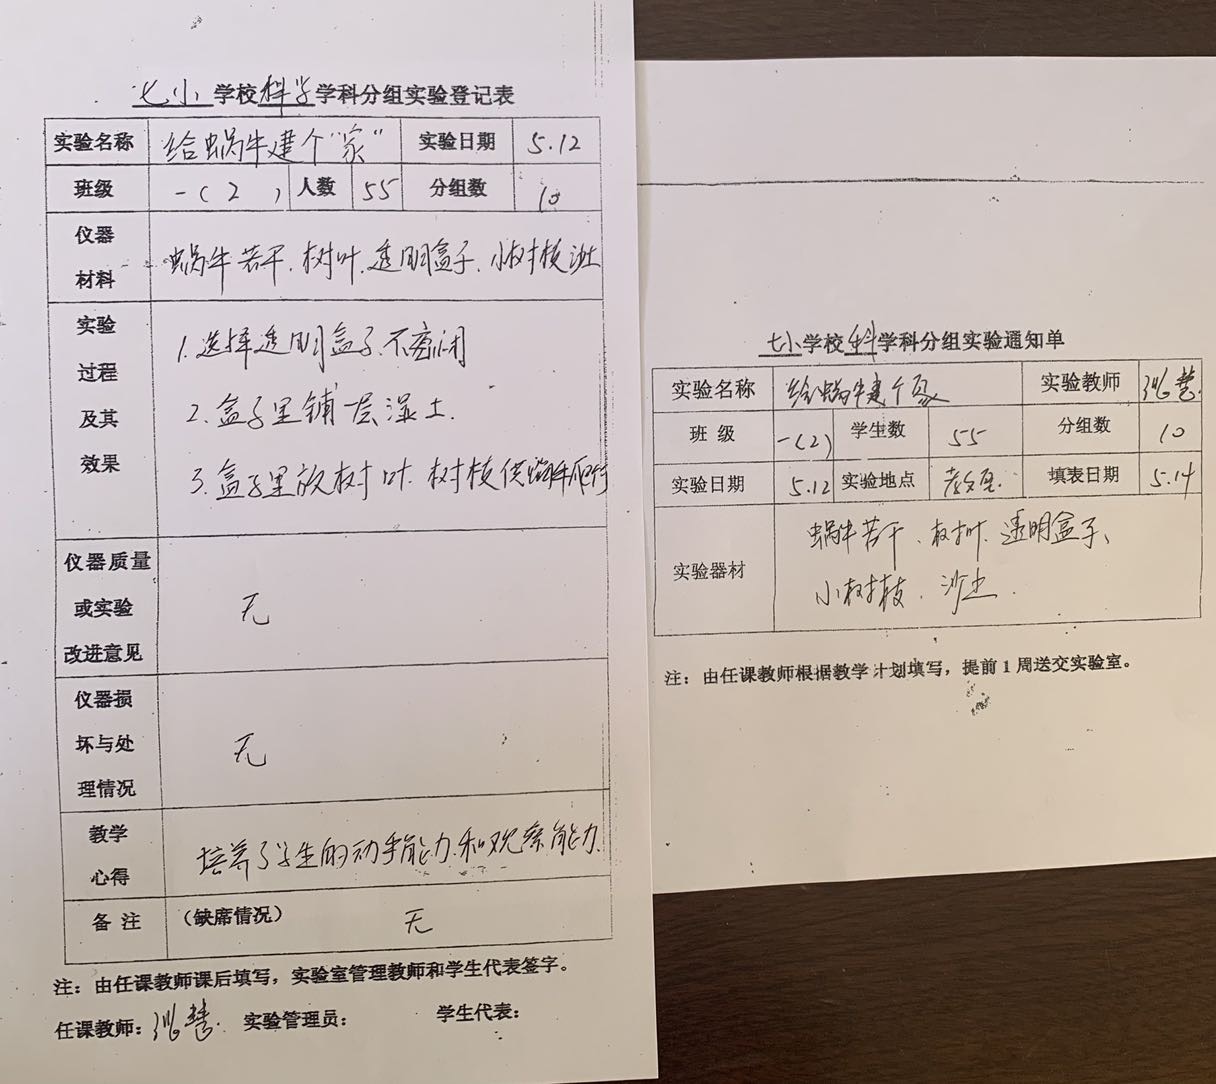 七小学校科学学科分组实验登记表
实验名称 给蜗牛建个“家” 实验日期 5.12
班级 一(2) 人数 55 分组数 10
仪器材料 蜗牛若干、树叶、透明盒子、小树枝沙土
实验过程及其效果
1.选择透明盒子、不密闭
2.盒子里铺一层湿土.
3.盒子里放树叶、树枝供蜗牛爬行
仪器质量或实验改进意见 无
仪器损坏与处理情况 无
教学心得 培养了学生的动手能力和观察能力.
备注 (缺席情况) 无
注：由任课教师课后填写，实验室管理教师和学生代表签字。
任课教师： 慧 实验管理员： 学生代表：
七小学校科学科分组实验通知单
实验名称 给蜗牛建个家 实验教师 慧
班级 一(2) 学生数 55 分组数 10
实验日期 5.12 实验地点 教室. 填表日期 5.14
实验器材 蜗牛若干、树叶、透明盒子、
小树枝、沙土.
注：由任课教师根据教学计划填写，提前1周送交实验室。